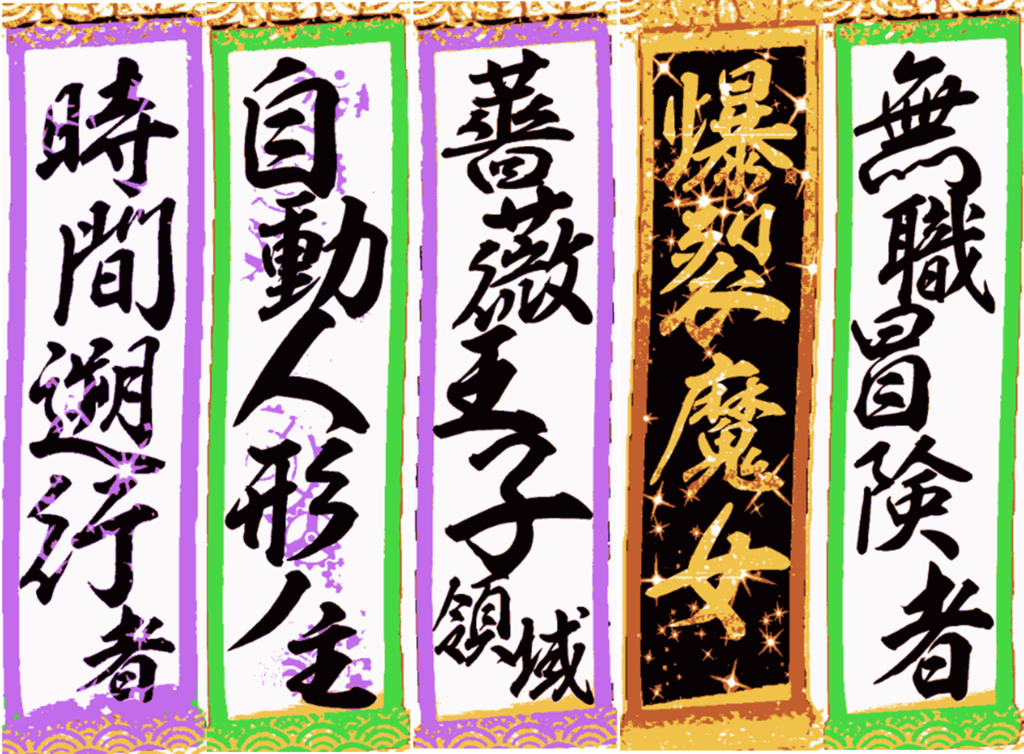 無職冒険者
爆裂魔女
薔薇王子領域
自動人形ノ主
時間遡行者